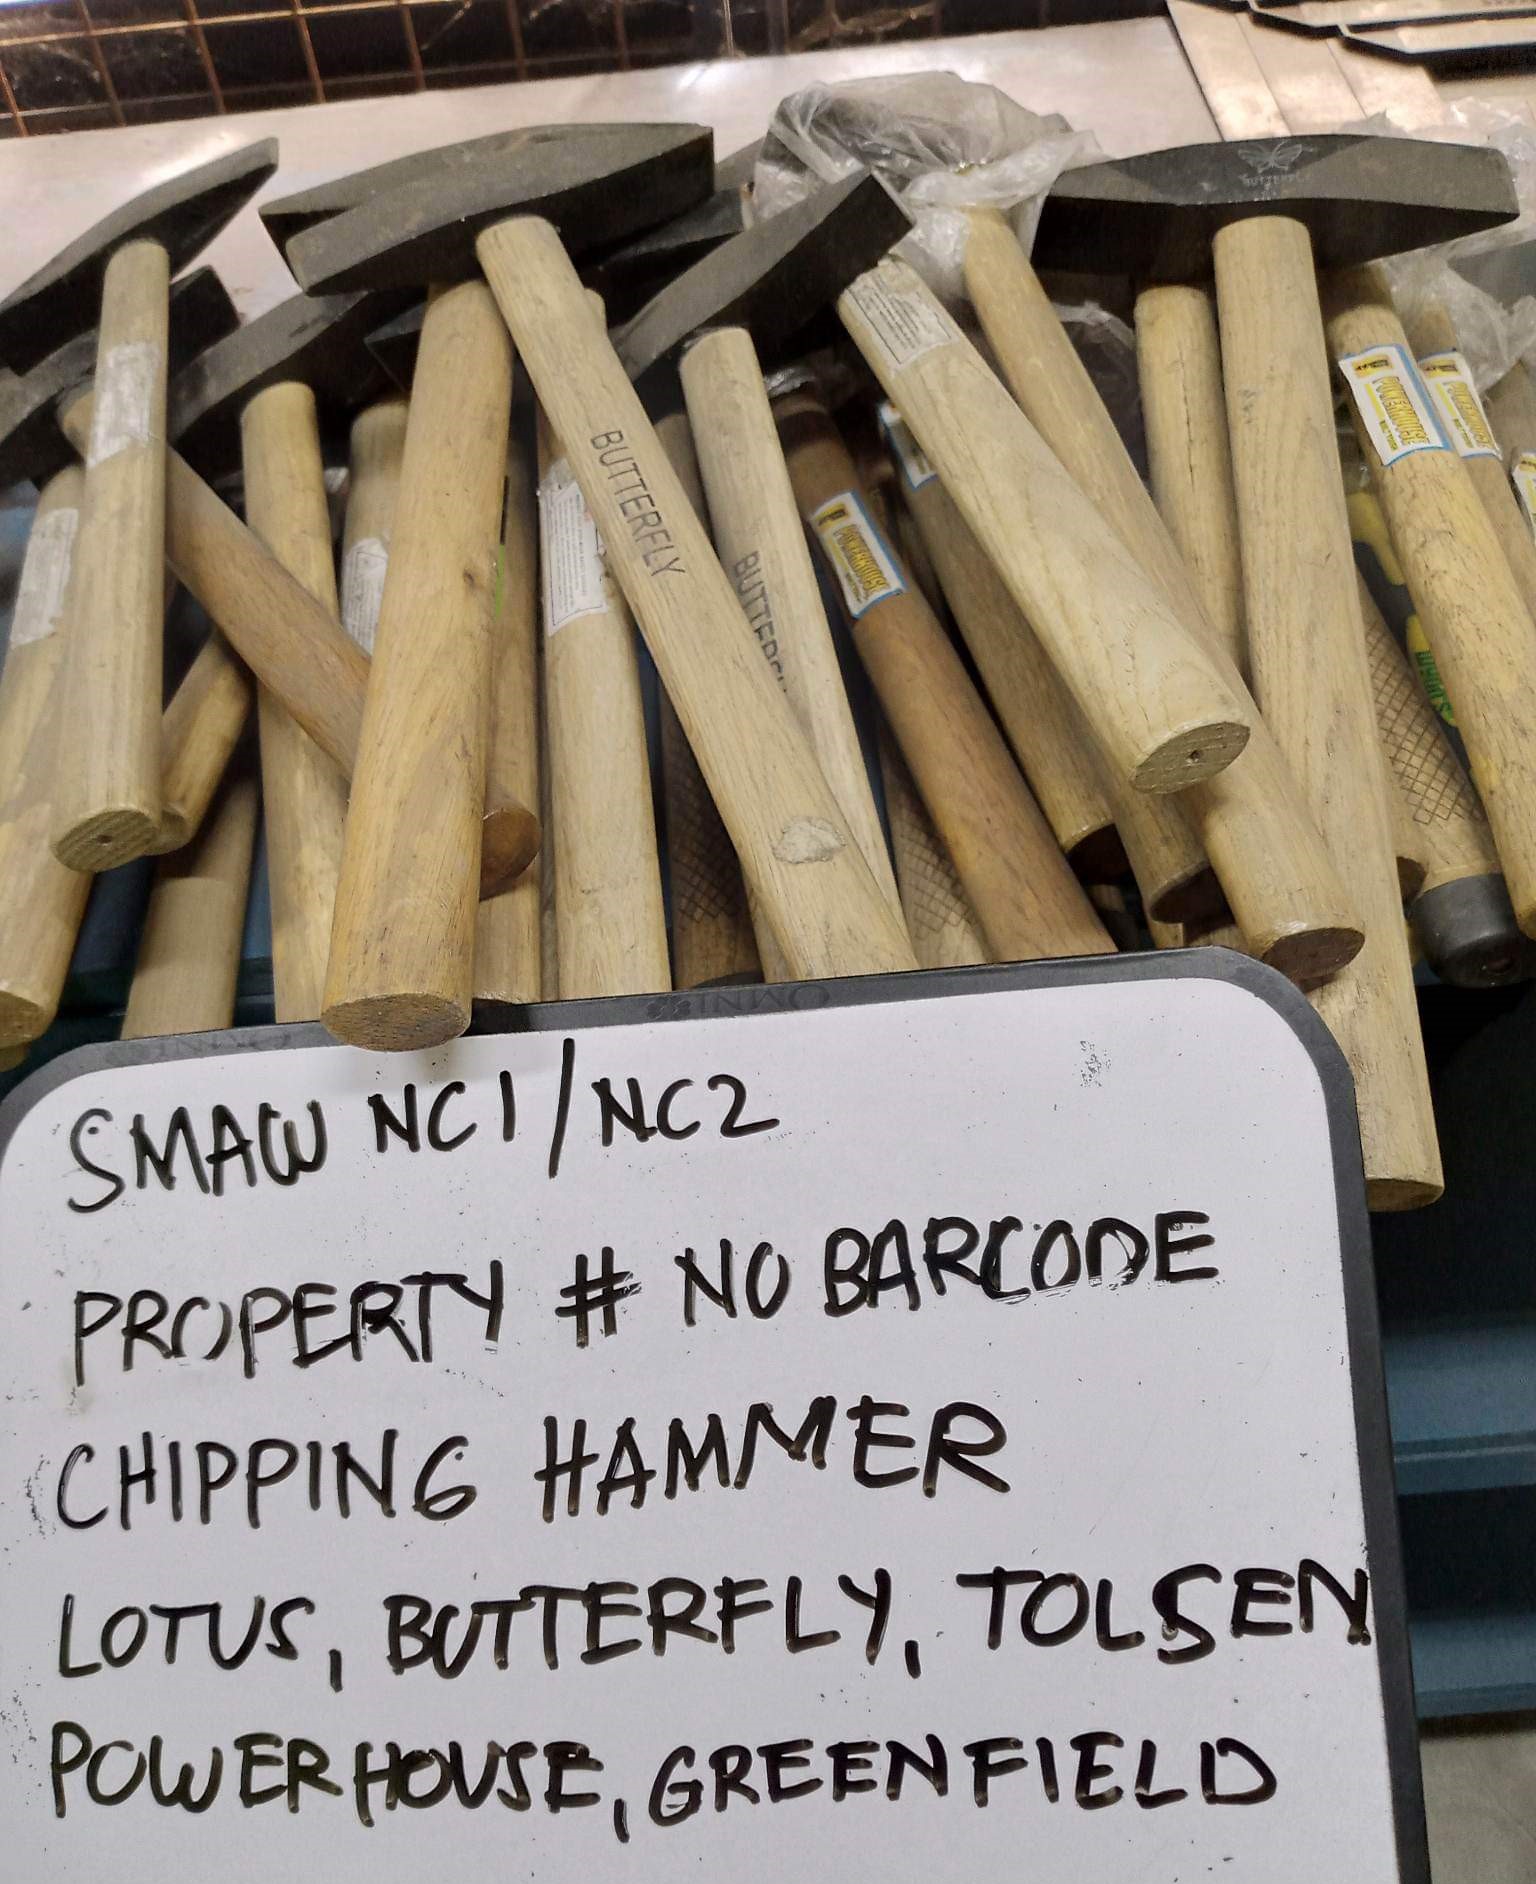 BUTTERFLY
BUTTERFLY
POWERHOUSE
POWERHOUSE
POWERHOUSE
OMNI
SMAW NC1/NC2
PROPERTY # NO BARCODE
CHIPPING HAMMER
LOTUS, BUTTERFLY, TOLSEN
POWERHOUSE, GREENFIELD